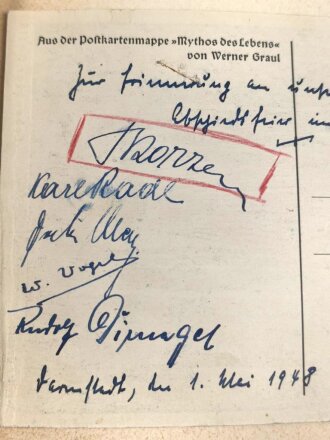 Aus der Postkartenmappe »Mythos des Lebens«
von Werner Graul
Zur Erinnerung an unse
Abschiedsfeier im
Skorzeny
Karl Radl
W. Vogel
Rudolf
Darmstadt, den 1. Mai 1948